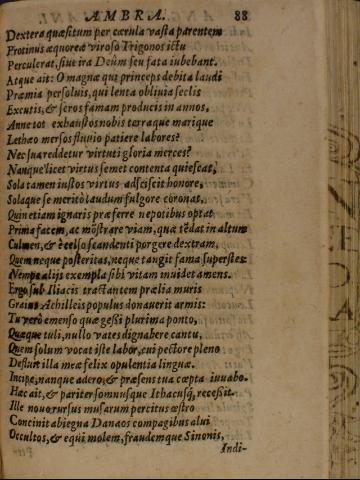 AMBRA. 88
Dextera quæsitum per cærula vasta parentem
Protinus æquoreæ viroso Trigonos ictu
Perculerat, siue ira Deûm seu fata iubebant.
Atque ait: O magnæ qui princeps debita laudi
Præmia persoluis, qui lenta obliuia seclis
Excutis, & seros famam producis in annos,
Anne tot exhaustos nobis terraque marique
Lethæo mersos fluuio patiere labores?
Nec sua reddetur virtuti gloria merces?
Nanque licet virtus semet contenta quiescat,
Sola tamen iustos virtus adsciscit honore,
Solaque se meritò laudum fulgore coronat,
Quin etiam ignaris præferre nepotibus optat
Prima facem, ac mõstrare viam, qua tẽdat in altum
Culmen, & è celso scandenti porgere dextram,
Quem neque posteritas, neque tangit fama superstes:
Nempe alijs exempla sibi vitam inuidet amens.
Ergo sub Iliacis tractantem prælia muris
Graius Achilleis populus donauerit armis:
Tu verò emenso quæ gessi plurima ponto,
Quæque tuli, nullo vates dignabere cantu,
Quem solum vocat iste labor, cui pectore pleno
Defluit illa meæ felix opulentia linguæ.
Incipe, nanque adero, & præsens tua cœpta iuuabo.
Hæc ait, & pariter somnusque Ithacusq́; recessit.
Ille nouo rursus musarum percitus œstro
Concinit abiegna Danaos compagibus alui
Occultos, & equi molem, fraudemque Sinonis,
Indi-